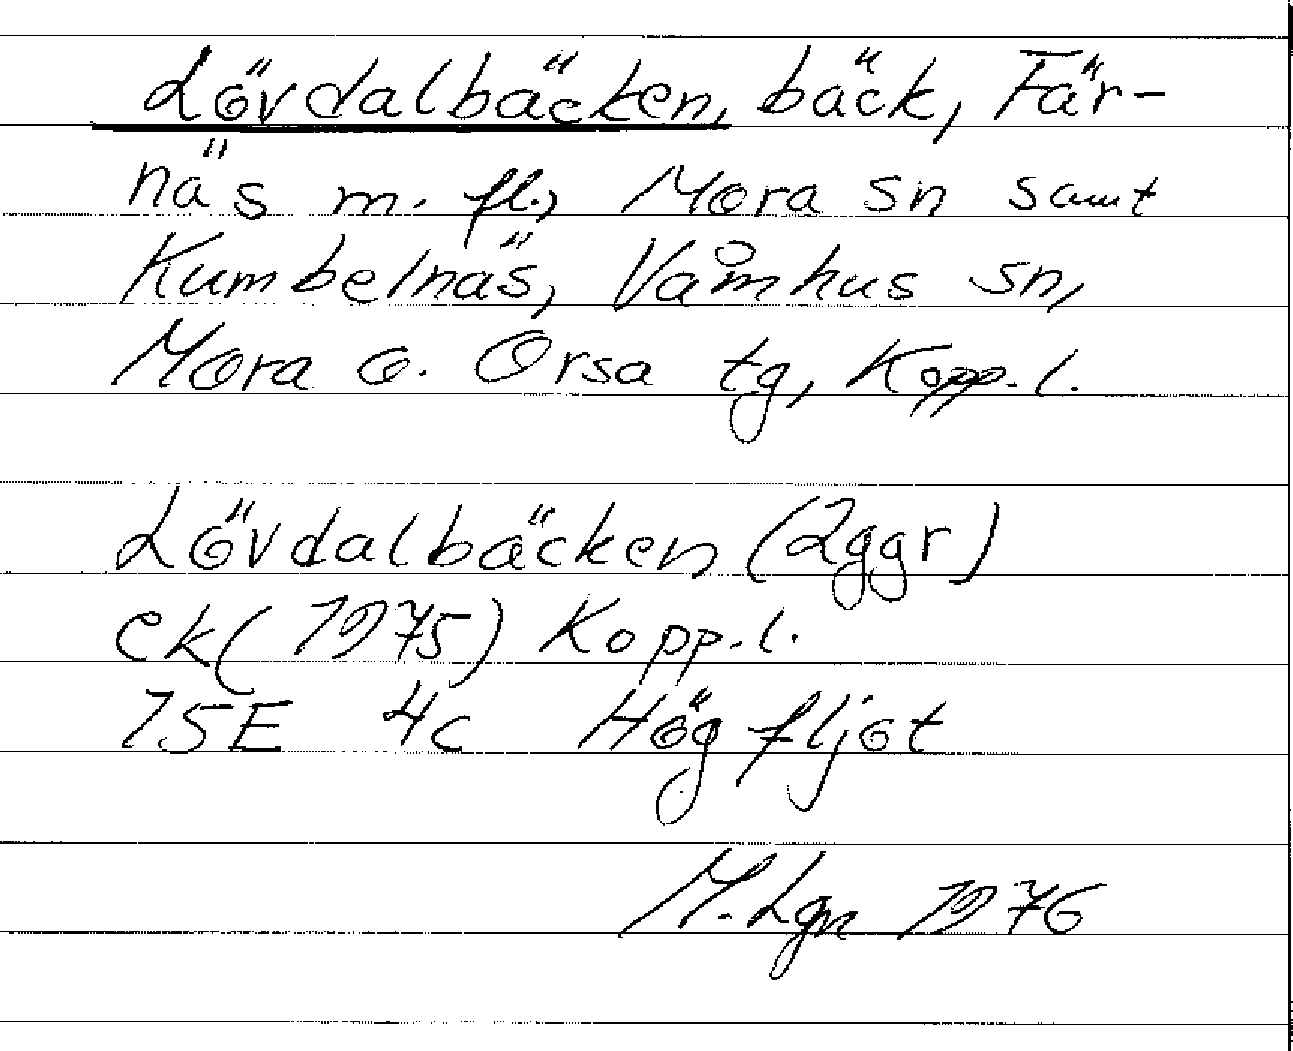 Lövdalbäcken, bäck, Fär-
näs m. fl., Mora sn samt
Kumbelnäs, Våmhus sn,
Mora o. Orsa tg, Kopp. l.
Lövdalbäcken (2ggr)
ek (1975) Kopp. l.
15E 4c Högfljot
M. Lgn 1976